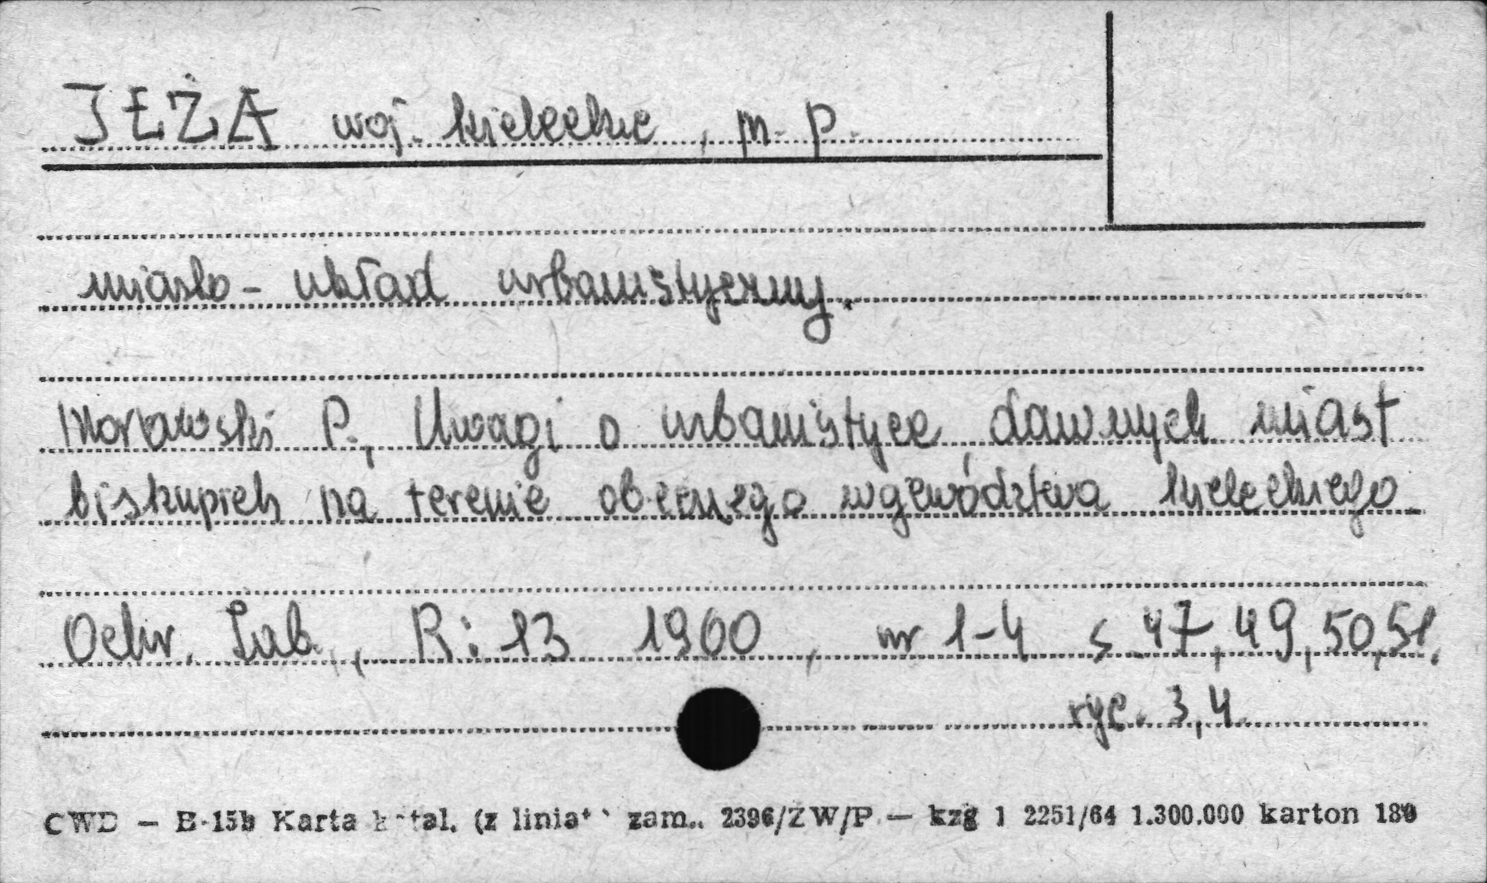 IŁŻA woj. kieleckie, m. p.
miasto - układ urbanistyczny.
P., Uwagi o urbanistyce dawnych miast
biskupich na terenie obecnego województwa kieleckiego
Ochr. Zab., R: 13 1960, nr 1-4 s 47, 49, 50, 51,
ryc. 3, 4.
CWD — E-15b Karta katal. (z linia zam. 2396/ZW/P — kzg 1 2251/64 1.300.000 karton 180